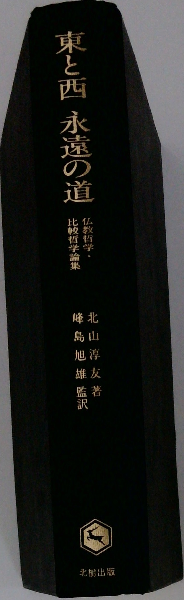 東と西 永遠の道
仏教哲学・
比較哲学論集
北山淳友著
峰島旭雄監訳
北樹出版